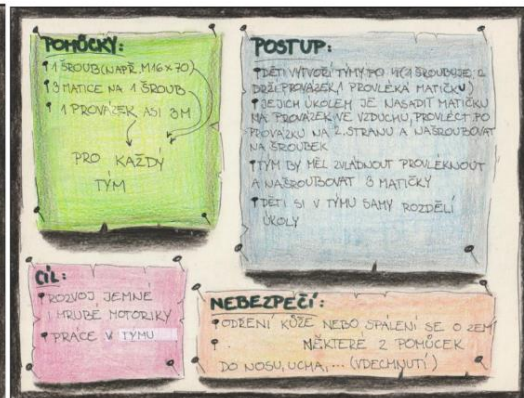 POMŮCKY:
1 ŠROUB (NAPŘ. M16x70)
3 MATICE NA 1 ŠROUB
1 PROVÁZEK ASI 3M
PRO KAŽDÝ
TÝM
POSTUP:
DĚTI VYTVOŘÍ TÝMY PO 4 (1 ŠROUBUJE, 2
DRŽÍ PROVÁZEK, 1 PROVLÉKÁ MATIČKU)
JEJICH ÚKOLEM JE NASADIT MATIČKU
NA PROVÁZEK VE VZDUCHU, PROVLÉCT PO
PROVÁZKU NA 2. STRANU A NAŠROUBOVAT
NA ŠROUBEK
TÝM BY MĚL ZVLÁDNOUT PROVLÉKNOUT
A NAŠROUBOVAT 3 MATIČKY
DĚTI SI V TÝMU SAMY ROZDĚLÍ
ÚKOLY
CÍL:
ROZVOJ JEMNÉ
I HRUBÉ MOTORIKY
PRÁCE V TÝMU
NEBEZPEČÍ:
ODŘENÍ KŮŽE NEBO SPÁLENÍ SE O ZEM
NĚKTERÉ Z POMŮCEK
DO NOSU, UCHA,... (VDECHNUTÍ)